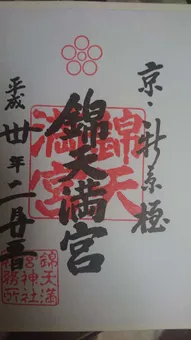 京・新京極
錦天満宮
錦天満宮
平成卅年二月廿五日
錦天満
宮神社
務所